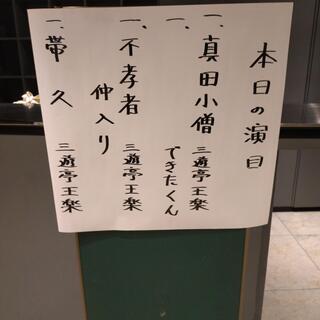 本日の演目
一、真田小僧 三遊亭王楽
一、できたくん
一、不孝者 三遊亭王楽
仲入り
一、帯久 三遊亭王楽